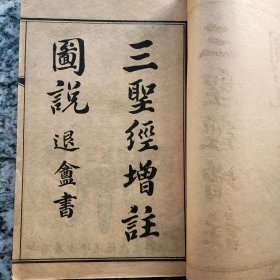 三聖經增註
圖說 退盦書